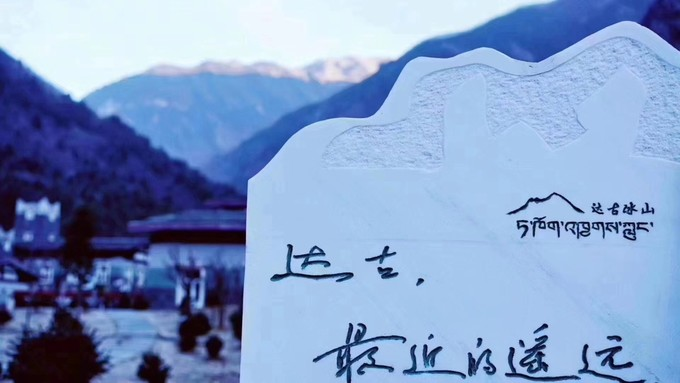 达古冰山
ཏ་ལོག་འཁྱགས་གླང་
达古,
最近的遥远